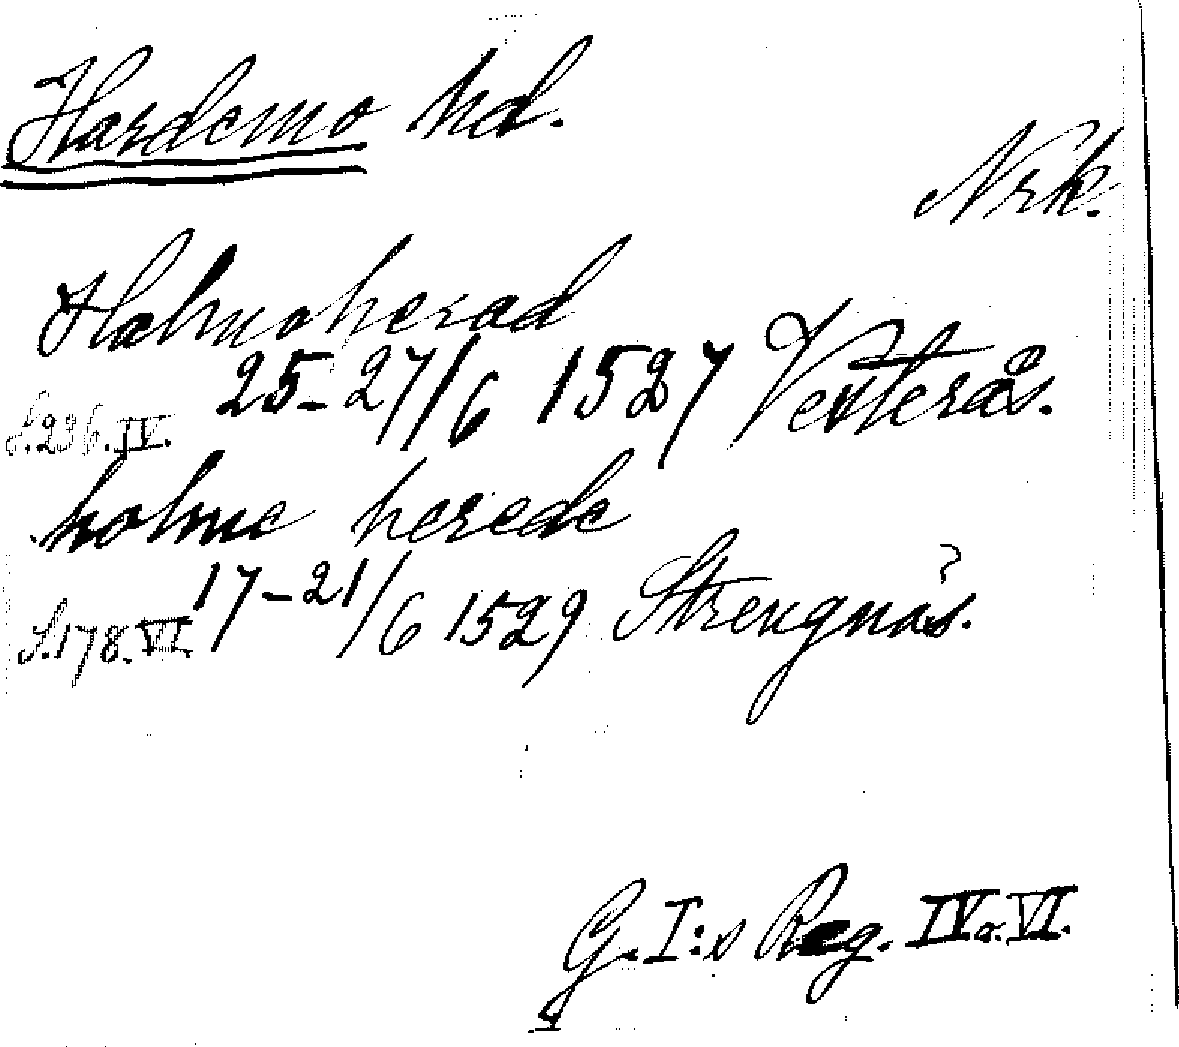 Hardemo hd.
Nrk.
Holmoherad
25-27/6 1527 Vesterås.
S.236.IV.
holme herede
17-21/6 1529 Strengnäs.
S.178.VI.
G.I:s Reg. IV. o. VI.